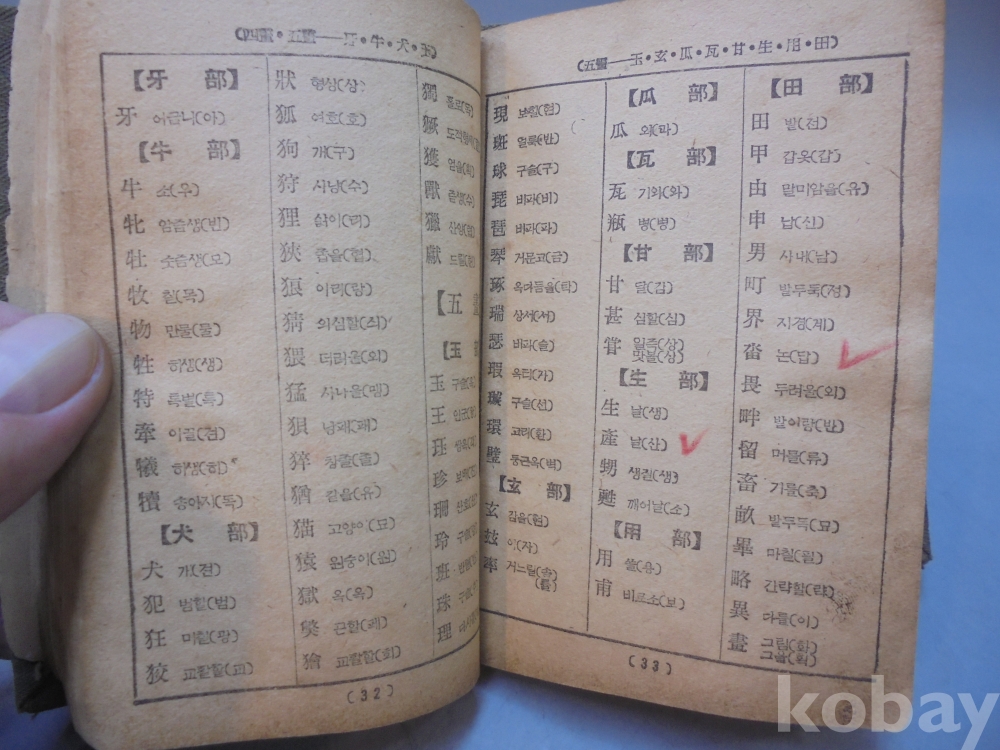 (四畫·五畫—牙·牛·犬·玉)
【牙 部】
牙 어금니(아)
【牛 部】
牛 소(우)
牝 암즘생(빈)
牡 숫즘생(모)
牧 칠(목)
物 만물(물)
牲 히생(생)
特 특별(특)
牽 이끌(견)
犧 히생(히)
犢 송아지(독)
【犬 部】
犬 개(견)
犯 범할(범)
狂 미칠(광)
狡 교활할(교)
狀 형상(상)
狐 여호(호)
狗 개(구)
狩 사냥(수)
狸 삵이(리)
狹 좁을(협)
狼 이리(랑)
猜 의심할(싀)
猥 더러울(외)
猛 사나울(맹)
狽 낭패(패)
猝 창졸(졸)
猶 같을(유)
猫 고양이(묘)
猿 원숭이(원)
獄 옥(옥)
獘 곤할(폐)
獪 교활할(회)
獨 홀로(독)
獗
獲 얻을(획)
獸 즘생(수)
獵
獻 드릴(헌)
【五 畫
【玉 部
玉 구슬
王
珏
珍
珊
玲
班
珠
理
(32)
(五畫—玉·玄·瓜·瓦·甘·生·用·田)
現 보일(현)
斑 얼룩(반)
球 구슬(구)
琵 비파(비)
琶 비파(파)
琴 거문고(금)
琢 옥다듬을(탁)
瑞 상서(서)
瑟 비파(슬)
瑕 옥티(가)
璇 구슬(선)
環 고래(환)
璧 둥근옥(벽)
【玄 部】
玄 감을(현)
玆 이(자)
率 거느릴(솔)
(률)
【瓜 部】
瓜 외(과)
【瓦 部】
瓦 기와(와)
瓶 병(병)
【甘 部】
甘 달(감)
甚 심할(심)
甞 일즉(상)
맛볼(상)
【生 部】
生 날(생)
産 낳(산)
甥 생질(생)
甦 깨어날(소)
【用 部】
用 쓸(용)
甫 비르소(보)
【田 部】
田 밭(전)
甲 갑옷(갑)
由 말미암을(유)
申 납(신)
男 사내(남)
町 밭두둑(정)
界 지경(계)
畓 논(답)
畏 두려울(외)
畔 밭이랑(반)
留 머물(류)
畜 기를(축)
畝 밭두둑(묘)
畢 마칠(필)
略 간략할(략)
異 다를(이)
畫 그림(화)
그을(획)
(33)
kobay